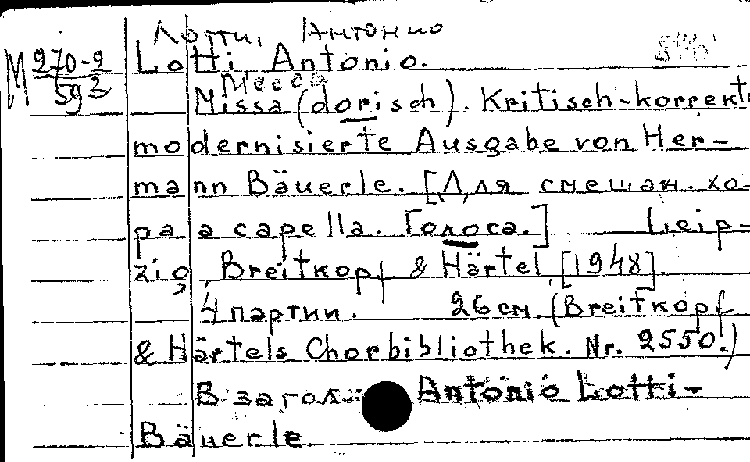 Лотти, Антонио
М 270-9
593
Lotti Antonio.
Месса
Missa (dorisch). Kritisch-korrekt
modernisierte Ausgabe von Her-
mann Bäuerle. [Для смешан. хо-
ра a capella. Голоса.] Leip-
zig, Breitkopf & Härtel, [1948].
4 партии. 26 см. (Breitkopf
& Härtels Chorbibliothek. Nr. 2550.)
В загол Antonio Lotti-
Bäuerle.